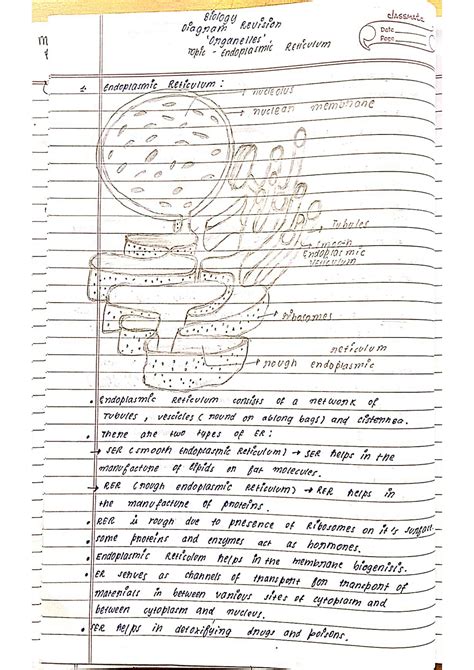 Biology
Diagram Revision
'Organelles'
Topic - Endoplasmic Reticulum
classmate
Date
Page
Endoplasmic Reticulum :
nucleolus
nuclear membrane
Tubules
smooth
Endoplasmic
ribosomes
reticulum
rough endoplasmic
• Endoplasmic Reticulum consists of a network of
Tubules, vescicles (round or oblong bags) and cisternea.
• There are two types of ER:
→ SER (smooth Endoplasmic Reticulum) → SER helps in the
manufacture of lipids or fat molecules.
→ RER (rough endoplasmic Reticulum) → RER helps in
the manufacture of proteins.
• RER is rough due to presence of Ribosomes on it's surface.
• some proteins and enzymes act as hormones.
• Endoplasmic Reticulum helps in the membrane biogenisis.
• ER serves as channels of transport for transport of
materials in between various sites of cytoplasm and
between cytoplasm and nucleus.
• SER helps in detoxifying drugs and poisons.